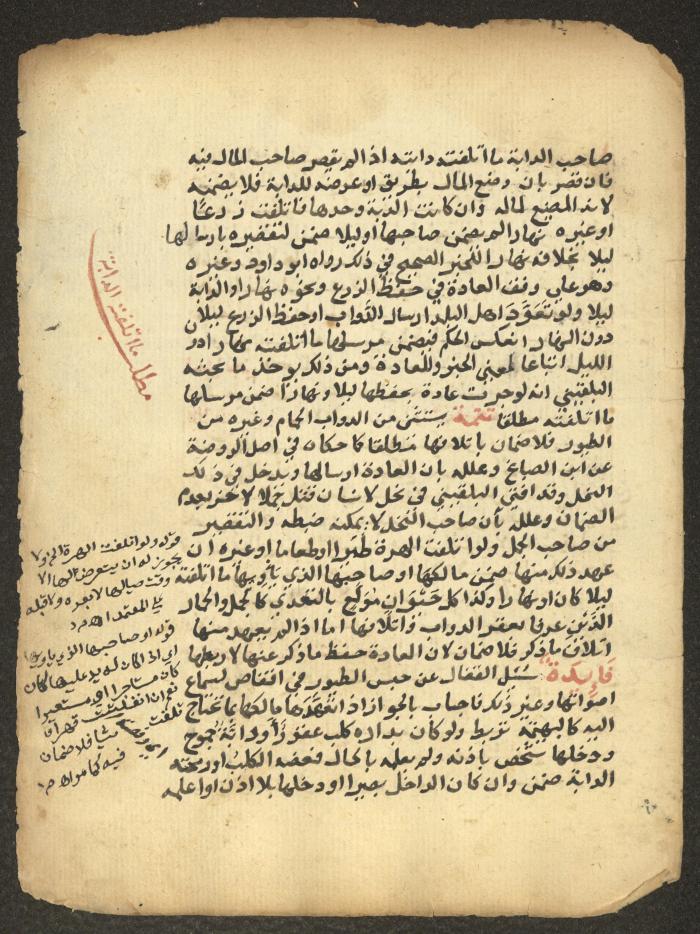 صاحب الدابة ما اتلفته دابته اذا لم يقصر صاحب المال فيه
فان قصر بان وضع المال بطريق او عرضه للدابة فلا يضمنه
لانه المضيع لماله وان كانت الدابة وحدها فاتلفت زرعا
او غيره نهارا لم يضمن صاحبها او ليلا ضمن لتقصيره بارسالها
ليلا بخلافه نهارا للخبر الصحيح في ذلك رواه ابو داود وغيره
وهو على وفق العادة في حفظ الزرع ونحوه نهارا والدابة
ليلا ولو تعود اهل البلد ارسال الدواب او حفظ الزرع ليلا
دون النهار انعكس الحكم فيضمن مرسلها ما اتلفته نهارا دون
الليل اتباعا لمعنى الخبر وللعادة ومن ذلك يوخذ ما بحثه
البلقيني انه لو جرت عادة بحفظها ليلا ونهارا ضمن مرسلها
ما اتلفته مطلقا تتمة يستثنى من الدواب الحمام وغيره من
الطيور فلا ضمان باتلافها مطلقا كما حكاه في اصل الروضة
عن ابن الصباغ وعلله بان العادة ارسالها ويدخل في ذلك
النحل وقد افتى البلقيني في نحل لانسان قتل جملا لاخر بعدم
الضمان وعلله بان صاحب النحل لا يمكنه ضبطه والتقصير
من صاحب الجمل ولو اتلفت الهرة طيرا او طعاما او غيره ان
عهد ذلك منها ضمن مالكها او صاحبها الذي ياويها ما اتلفته
ليلا كان او نهارا وكذا كل حيوان مولع بالتعدي كالجمل والحمار
الذين عرفا بعقر الدواب واتلافها اما اذا لم يعهد منها
اتلاف ما ذكر فلا ضمان لان العادة حفظ ما ذكر عنها لا ربطها
فايدة سئل القفال عن حبس الطيور في اقفاص لسماع
اصواتها وغير ذلك فاجاب بالجواز اذا تعهدها مالكها بما تحتاج
اليه كالبهيمة تربط ولو كان بداره كلب عقور او دابة جموح
ودخلها شخص باذنه ولم يعلمه بالحال فعضه الكلب او رمحته
الدابة ضمن وان كان الداخل بصيرا او دخلها بلا اذن او اعلمه
مطلب ما اتلفته الدابة
قوله ولو اتلفت الهرة الخ ولا
يجوز له ان يتعرض لها الا
وقت صيالها لا بعده ولا قبله
على المعتمد اهـ م د
قوله او صاحبها الذي ياويها
اي اذا كان له يد عليها كان
كان مستاجرا او مستعيرا
نعم ان انفلتت قهرا
تلفت شيا فلا ضمان
فيه كما مر اهـ م د